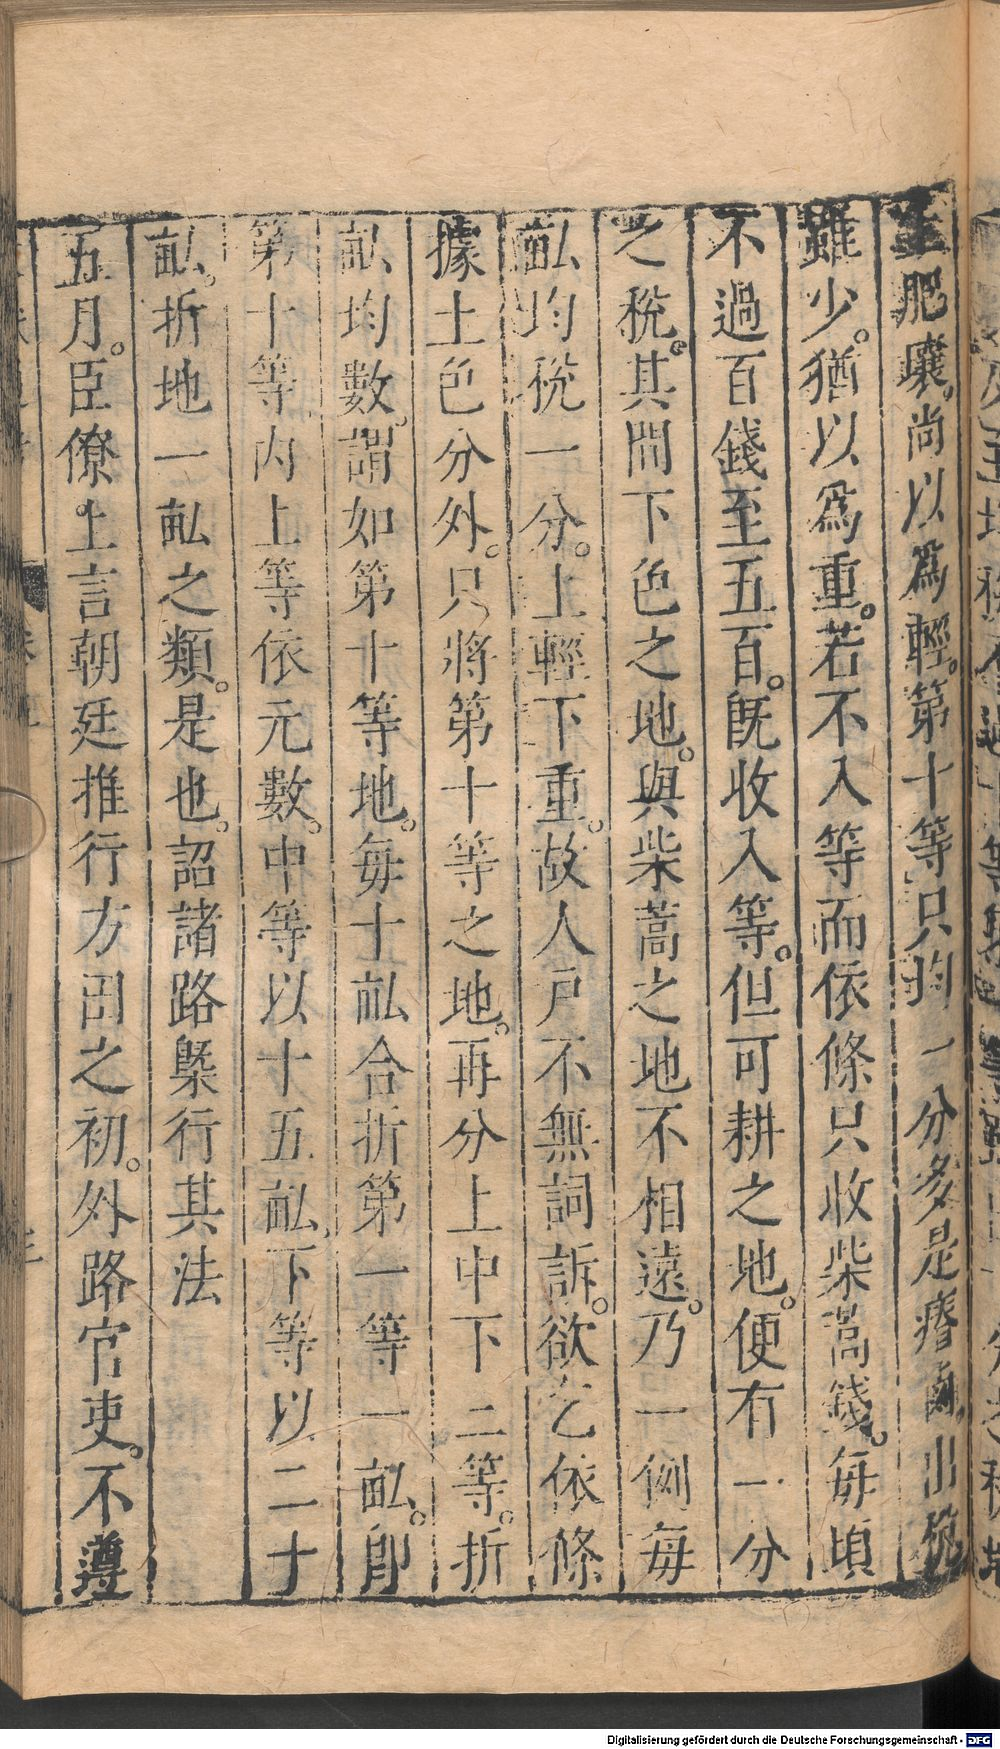 土肥壤。尚以爲輕。第十等只均一分多是瘠鹵。出稅
雖少。猶以爲重。若不入等而依條只收柴蒿錢。每頃
不過百錢至五百。旣收入等。但可耕之地。便有一分
之稅。其間下色之地。與柴蒿之地不相遠。乃一例每
畝均稅一分。上輕下重。故人戸不無詞訴。欲乞依條
據土色分外。只將第十等之地。再分上中下二等。折
畝均數。謂如第十等地。每十畝合折第一等一畝。卽
第十等內上等依元數。中等以十五畝。下等以二十
畝。折地一畝之類。是也。詔諸路槩行其法
五月。臣僚上言朝廷推行方田之初。外路官吏。不遵
Digitalisierung gefördert durch die Deutsche Forschungsgemeinschaft - DFG